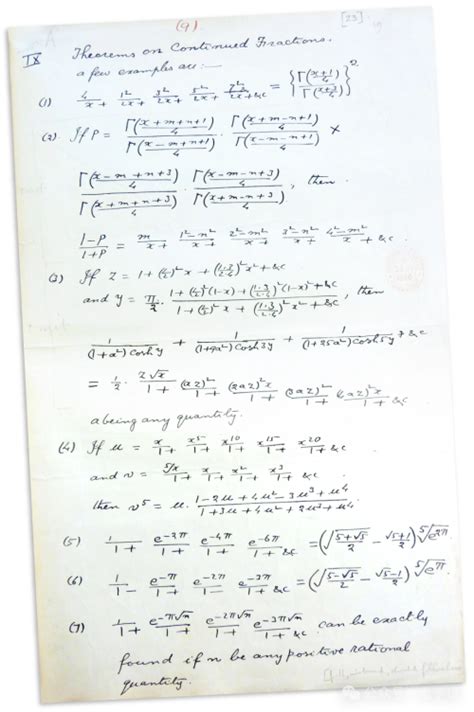 (9)
[23]
IX Theorems on Continued Fractions.
a few examples are :—
(1) 4/x+ 1²/2x+ 3²/2x+ 5²/2x+ 7²/2x+&c = {Γ((x+1)/4)/Γ((x+3)/4)}²
(2) If P = Γ((x+m+n+1)/4)/Γ((x-m+n+1)/4) · Γ((x+m-n+1)/4)/Γ((x-m-n+1)/4) ×
Γ((x-m+n+3)/4)/Γ((x+m+n+3)/4) · Γ((x-m-n+3)/4)/Γ((x+m-n+3)/4), then
(1-P)/(1+P) = m/x+ (1²-n²)/x+ (2²-m²)/x+ (3²-n²)/x+ (4²-m²)/x + &c.
(3) If z = 1+(1/2)²x + (1·3/2·4)²x²+&c
and y = π/2 · (1+(1/2)²(1-x)+(1·3/2·4)²(1-x)²+&c)/(1+(1/2)²x + (1·3/2·4)²x²+&c), then
1/((1+a²)cosh y) + 1/((1+9a²)cosh 3y) + 1/((1+25a²)cosh 5y) + &c
= 1/2 · z√x/1+ (az)²/1+ (2az)²x/1+ (3az)²/1+ (4az)²x/1+&c
a being any quantity.
(4) If u = x/1+ x⁵/1+ x¹⁰/1+ x¹⁵/1+ x²⁰/1+&c
and v = ⁵√x/1+ x/1+ x²/1+ x³/1+&c.
then v⁵ = u · (1-2u+4u²-3u³+u⁴)/(1+3u+4u²+2u³+u⁴)
(5) 1/1+ e^-2π/1+ e^-4π/1+ e^-6π/1+&c. = (√((5+√5)/2) - (√5+1)/2) ⁵√e^2π
(6) 1/1- e^-π/1+ e^-2π/1- e^-3π/1+&c = (√((5-√5)/2) - (√5-1)/2) ⁵√e^π
(7) 1/1+ e^-π√n/1+ e^-2π√n/1+ e^-3π√n/1+&c. can be exactly
found if n be any positive rational
quantity.